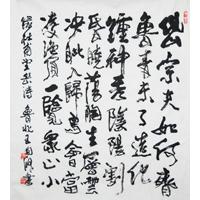 岱宗夫如何齊
魯青未了造化
鍾神秀陰陽割
昏曉蕩胸生曾雲
決眥入歸鳥會當
凌絕頂一覽眾山小
錄杜甫望岳詩 魯北王